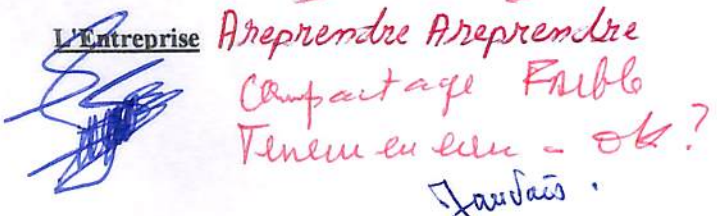 L'Entreprise Areprendre Areprendre
Compactage Faible
Teneur en eau = ok?